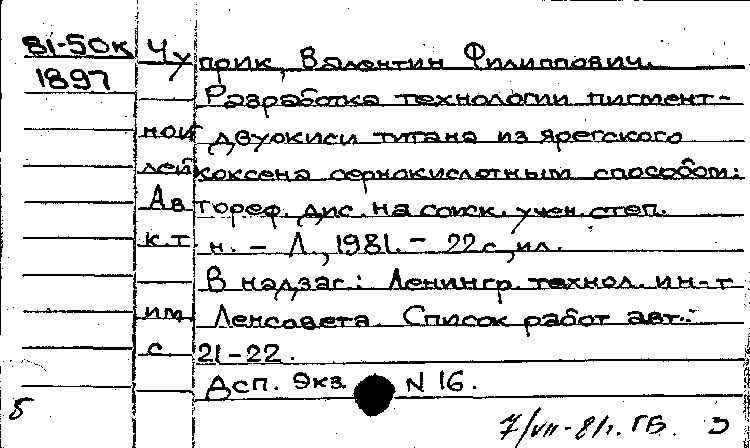 81-50к Чуприк, Валентин Филиппович.
1897
Разработка технологии пигмент-
ной двуокиси титана из ярегского
лейкоксена сернокислотным способом:
Автореф. дис. на соиск. учен. степ.
к.т.н. - Л., 1981. - 22 с., ил.
В надзаг.: Ленингр. технол. ин-т
им. Ленсовета. Список работ авт.:
с. 21-22.
Дсп. Экз. N 16.
б 7/VII-81г. ГБ. Э